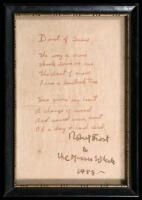 Dust of Snow
The way a crow
Shook down on me
The dust of snow
From a hemlock tree
Has given my heart
A change of mood
And saved some part
Of a day I had rued.
Robert Frost
to